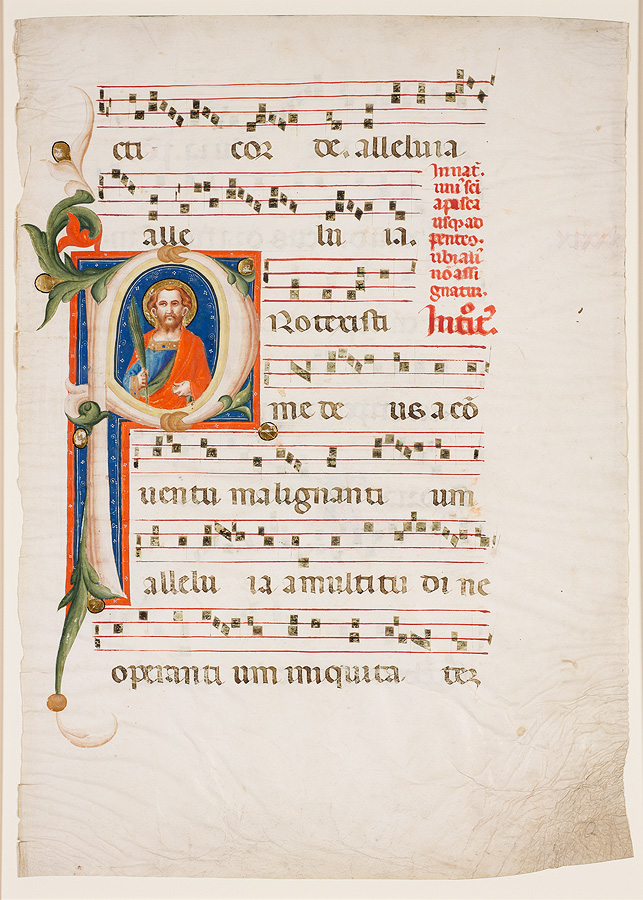 cti cor de. alleluia
alle lu ia.
In nat̄.
uni' sci
apl's ea
usq; ad
pentec̄.
ubi aliȳ
nō assi
gnatur.
Introit̄.
Protexisti
me de us a cō
uentu malignanti um
allelu ia a multitu di ne
operanti um iniquita tez